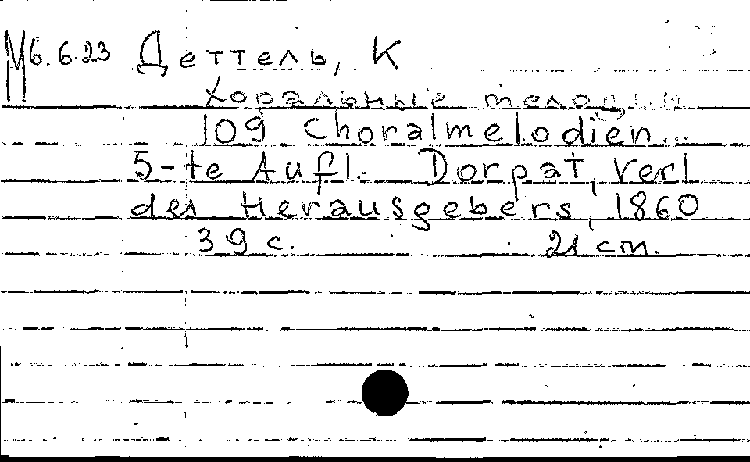 М6.6.23 Деттель, К
Хоральные мелодии
109 Choralmelodien...
5-te Aufl. Dorpat, Verl
des Herausgebers, 1860
39 с. 21 cm.